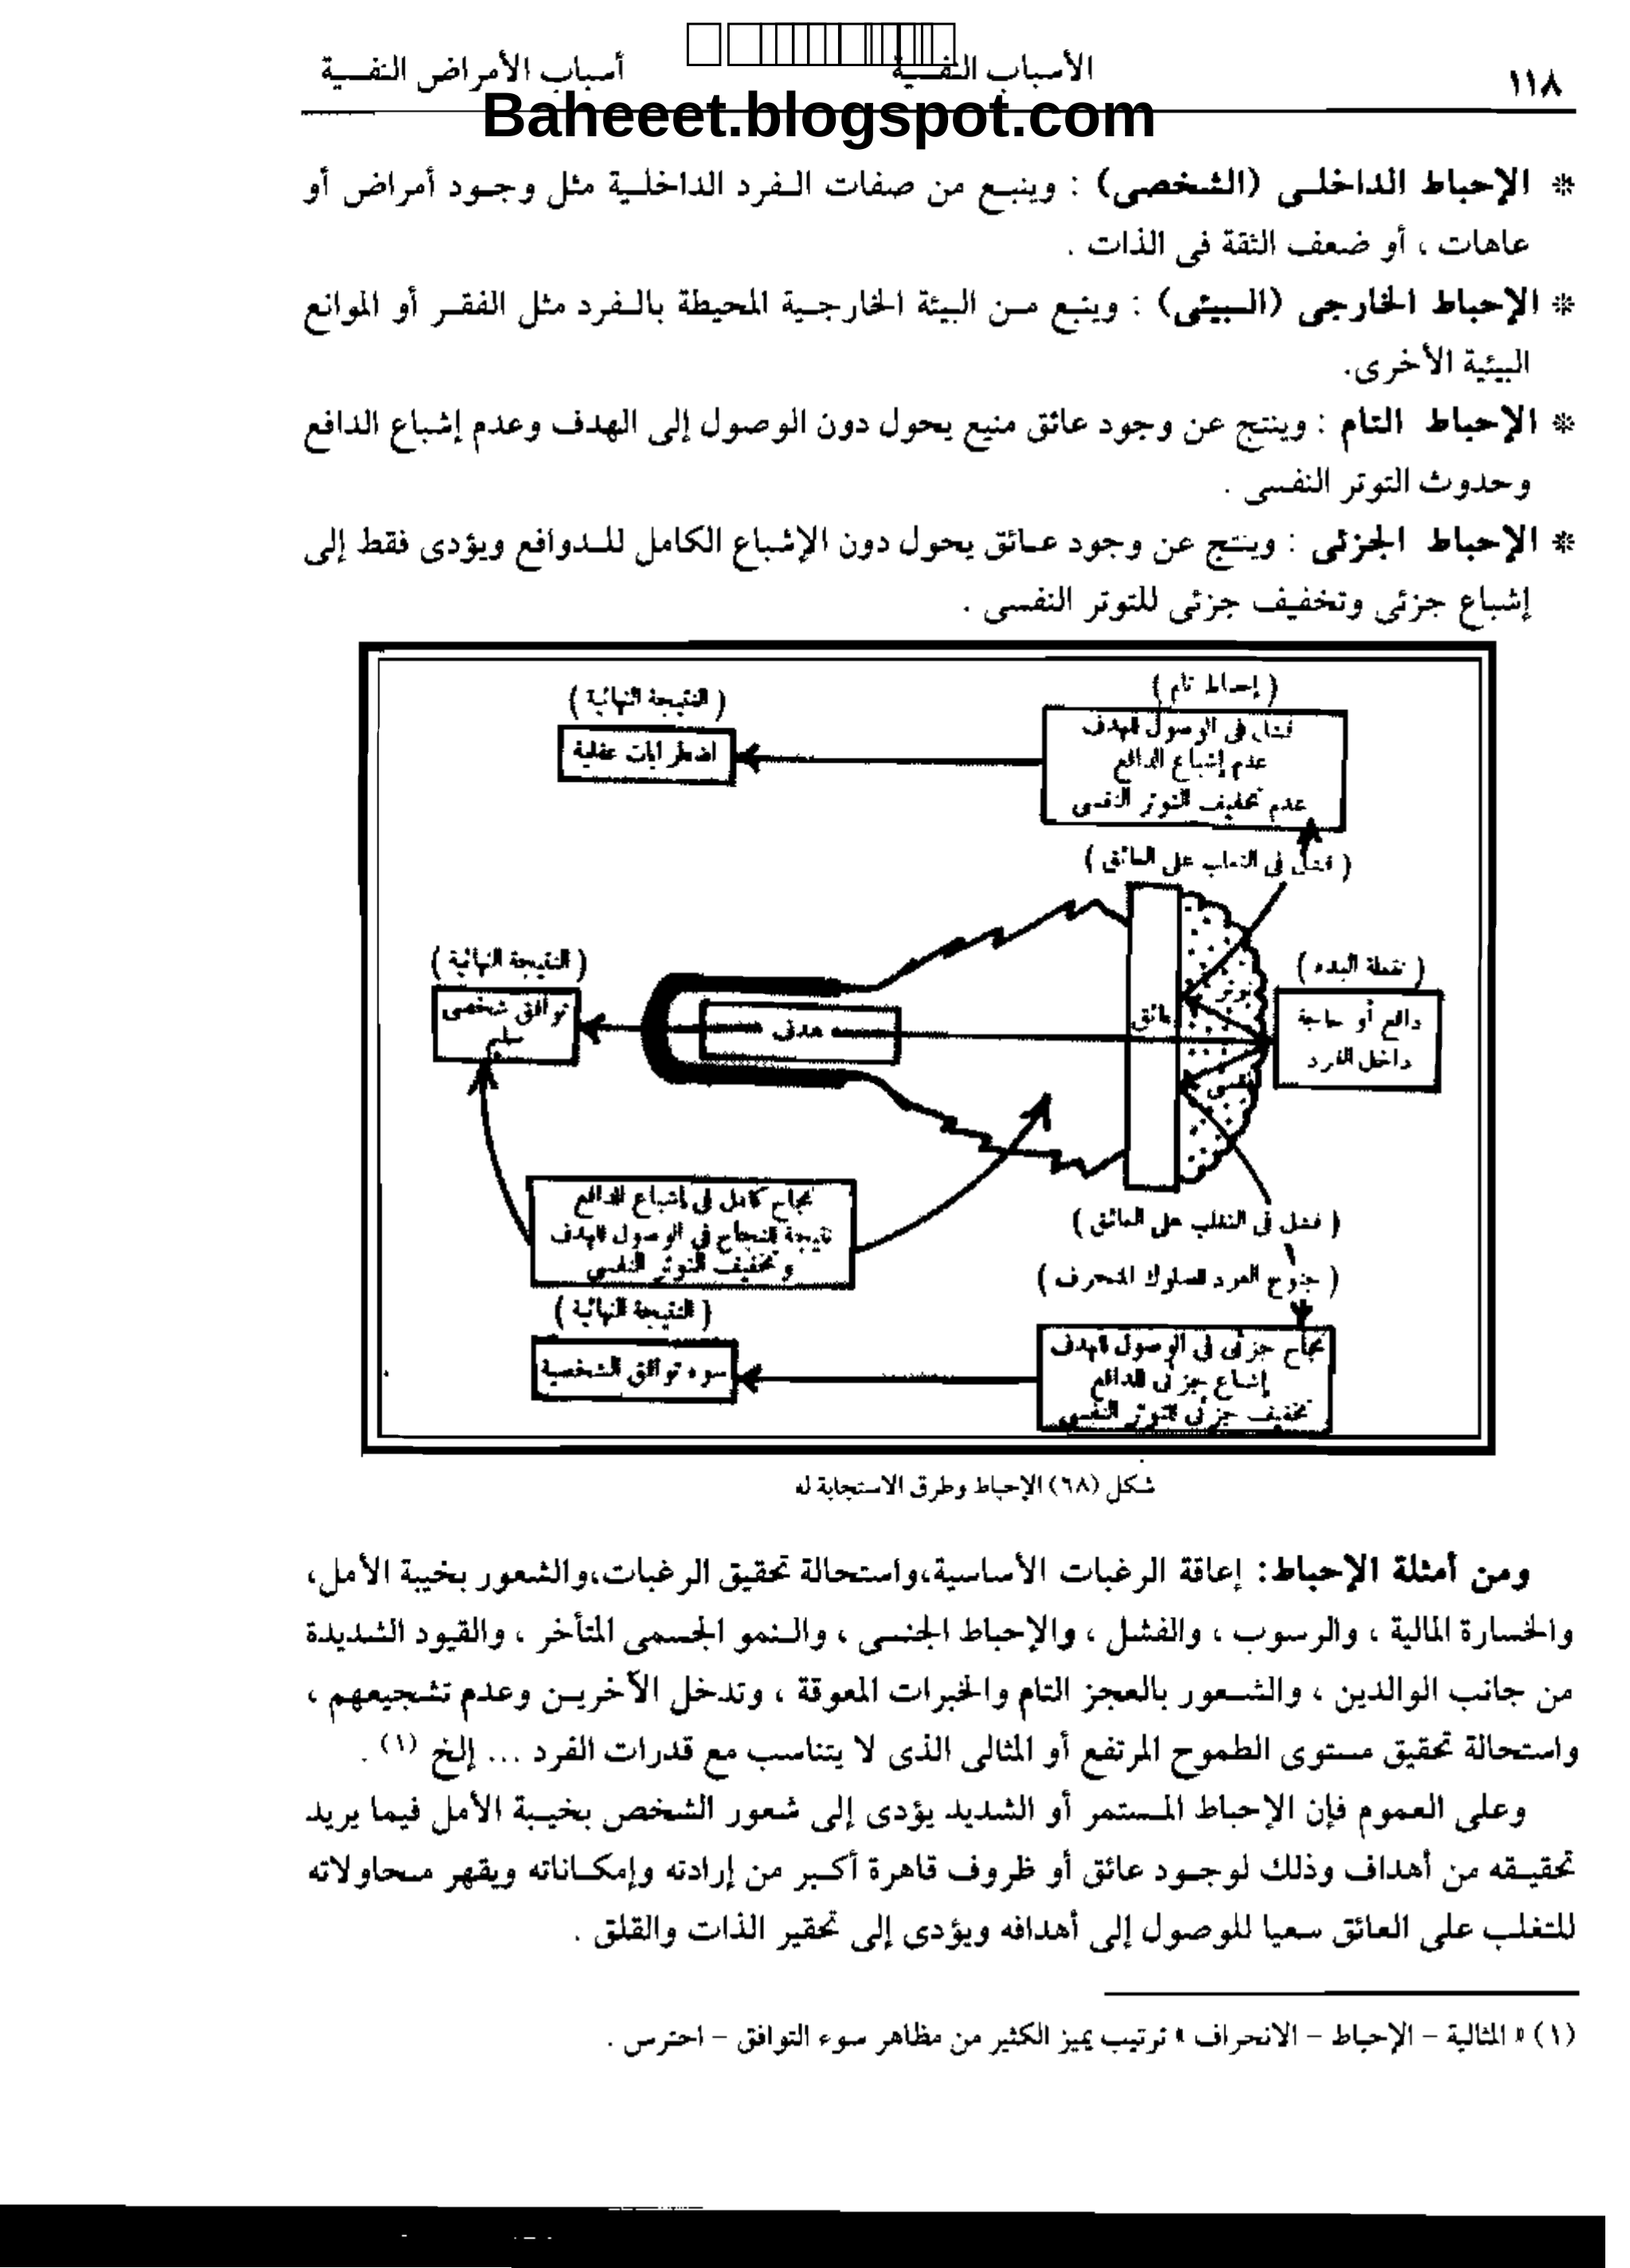 ١١٨
الأسباب النفسية
أسباب الأمراض النفسية
Baheeet.blogspot.com
* الإحباط الداخلى (الشخصى) : وينبع من صفات الفرد الداخلية مثل وجود أمراض أو
عاهات ، أو ضعف الثقة فى الذات .
* الإحباط الخارجى (البيئى) : وينبع من البيئة الخارجية المحيطة بالفرد مثل الفقر أو الموانع
البيئية الأخرى.
* الإحباط التام : وينتج عن وجود عائق منيع يحول دون الوصول إلى الهدف وعدم إشباع الدافع
وحدوث التوتر النفسى .
* الإحباط الجزئى : وينتج عن وجود عائق يحول دون الإشباع الكامل للدوافع ويؤدى فقط إلى
إشباع جزئى وتخفيف جزئى للتوتر النفسى .
( إحباط تام )
فشل فى الوصول للهدف
عدم إشباع الدافع
عدم تخفيف التوتر النفسى
( النتيجة النهائية )
اضطرابات عقلية
( فشل فى التغلب على العائق )
( نقطة البدء )
دافع أو حاجة
داخل الفرد
توتر
نفسى
عائق
هدف
( النتيجة النهائية )
توافق شخصى
سليم
نجاح كامل فى إشباع الدافع
نتيجة للنجاح فى الوصول للهدف
وتخفيف التوتر النفسى
( فشل فى التغلب على العائق )
( جنوح الفرد للسلوك المنحرف )
نجاح جزئى فى الوصول للهدف
إشباع جزئى للدافع
تخفيف جزئى للتوتر النفسى
( النتيجة النهائية )
سوء توافق الشخصية
شكل (٦٨) الإحباط وطرق الاستجابة له
ومن أمثلة الإحباط: إعاقة الرغبات الأساسية،واستحالة تحقيق الرغبات،والشعور بخيبة الأمل،
والخسارة المالية ، والرسوب ، والفشل ، والإحباط الجنسى ، والنمو الجسمى المتأخر ، والقيود الشديدة
من جانب الوالدين ، والشعور بالعجز التام والخبرات المعوقة ، وتدخل الآخرين وعدم تشجيعهم ،
واستحالة تحقيق مستوى الطموح المرتفع أو المثالى الذى لا يتناسب مع قدرات الفرد ... إلخ (١) .
وعلى العموم فإن الإحباط المستمر أو الشديد يؤدى إلى شعور الشخص بخيبة الأمل فيما يريد
تحقيقه من أهداف وذلك لوجود عائق أو ظروف قاهرة أكبر من إرادته وإمكاناته ويقهر محاولاته
للتغلب على العائق سعيا للوصول إلى أهدافه ويؤدى إلى تحقير الذات والقلق .
(١) « المثالية – الإحباط – الانحراف » ترتيب يميز الكثير من مظاهر سوء التوافق – احترس .